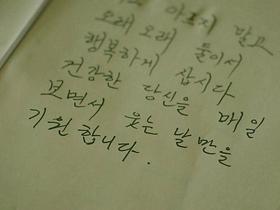 아프지 말고
오래 오래 둘이서
행복하게 삽시다
건강한 당신을 매일
보면서 웃는 날만을
기원합니다.